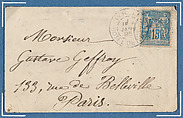 Monsieur
Gustave Geffroy
133, rue de Belleville
Paris.
15